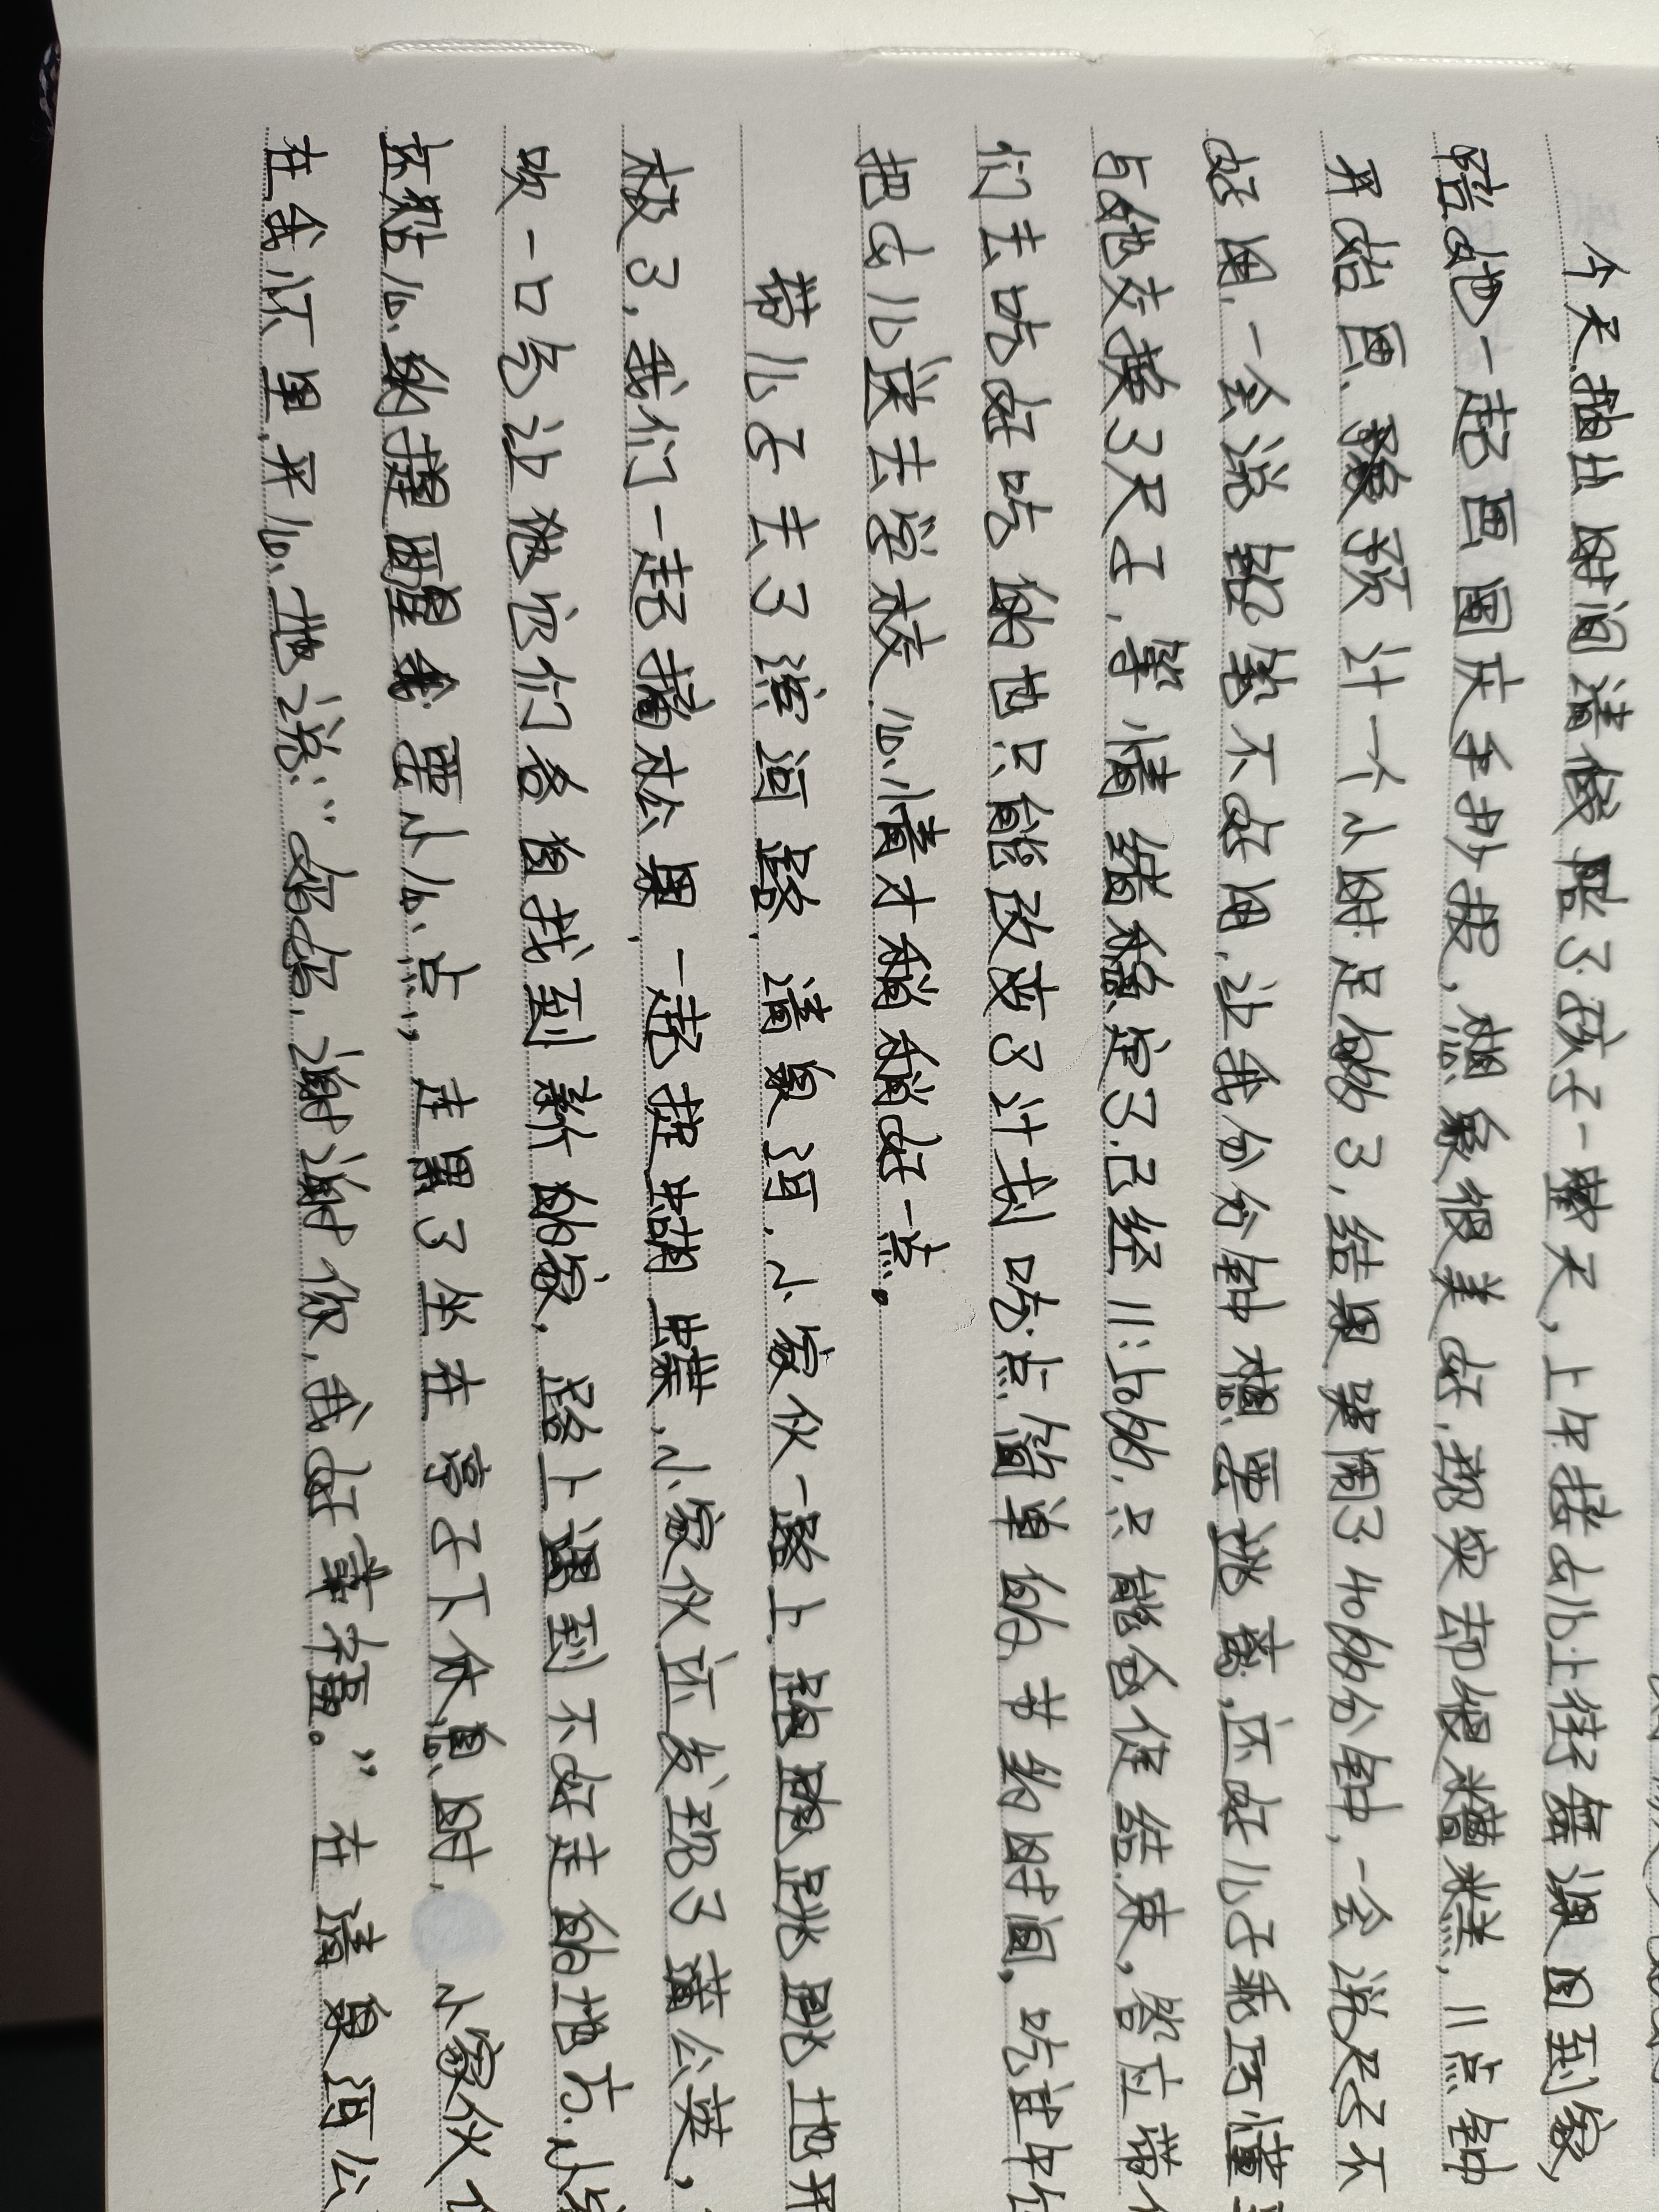 今天抽出时间请假陪了孩子一整天，上午接女儿上街舞课回到家，
陪她一起画国庆手抄报，想象很美好，现实却很糟糕，11点钟
开始画，预计一个小时足够了，结果哭闹了40多分钟，一会说尺子不
好用，一会说铅笔不好用，让我分分钟想要逃离，还好儿子乖巧懂
与他交换了尺子，等情绪稳定了已经11:50多，只能仓促结束，答应带
们去吃好吃的也只能改变了计划吃点简单的节约时间，吃过午
把女儿送去学校心情才稍稍好一点。
带儿子去了滨河路，清泉河，小家伙一路上蹦蹦跳跳地开
极了，我们一起摘松果，一起捉蝴蝶，小家伙还发现了蒲公英，
吹一口气让他它们各自找到新的家，路上遇到不好走的地方，小
还贴心的提醒我要小心点，走累了坐在亭子下休息时，小家伙
在我怀里开心地说：“妈妈，谢谢你，我好幸福。”在清泉河公